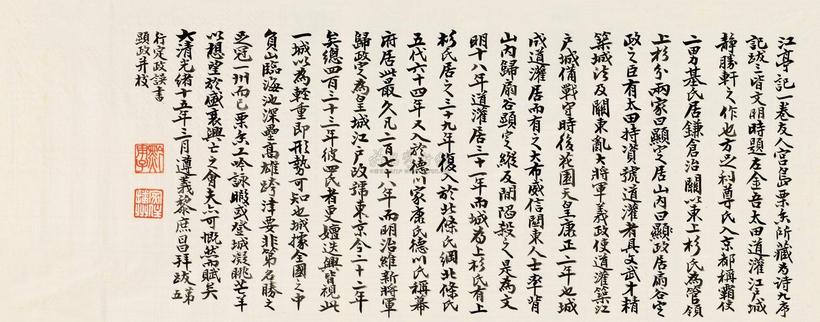 江亭記一卷友人宮島栗香所藏為詩九序
記跋三皆文明時題左金吾太田道灌江戶城
靜勝軒之作也方足利尊氏入京都稱霸使
二男基氏居鎌倉治關以東上杉氏為管領
上杉分兩家曰顯定居山內曰顯政居扇谷定
政之臣有太田持資號道灌者具文武才精
築城法及關東亂大將軍義政使道灌築江
戶城備戰守時後花園天皇康正二年也城
成道灌居而有之大布威信關東人士率背
山內歸扇谷顯定縱反間陷殺之是為文
明十八年道灌居三十一年而城為上杉氏有上
杉氏居之三十九年復入於北條氏綱北條氏
五代六十四年又入於德川家康氏德川氏稱幕
府居此最久凡二百七十八年而明治維新將軍
歸政定為皇城江戶改號東京今二十二年
矣總四百三十三年彼四氏者更嬗迭興皆視此
一城以為輕重即形勢可知也城據全國之中
負山臨海池深壘高雄跨津要非第名勝之
冠一州而已栗香工吟詠暇或登城凝眺芒羊
以想望於盛衰興亡之會夫亦可慨然而賦矣
大清光緒十五年三月遵義黎庶昌拜跋第五
行定政誤書
顯政并校